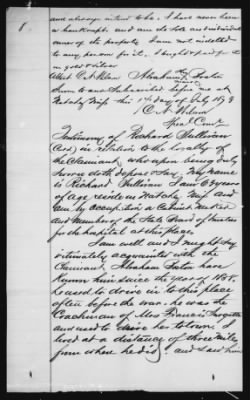 8
and always intend to be. I have never been
a bankrupt. and am the sole and individual
owner of the property. I am not indebted
to any person for it. I bought & paid for it
in gold & silver.
Abraham his mark
Sworn to and Subscribed before me at
Natchez Miss this day of July 187
Testimony of Richard Sullivan
(Cold) in relation to the loyalty of
the Claimant, who upon being duly
sworn doth depose & say. My name
is Richard Sullivan I am 63 years
of age reside in Natchez Miss and
am by occupation a
and Member of the State Board of
for the hospital at this place.
I am well and I might say
intimately acquainted with the
Claimant, Abraham have
known him since the year of 185
he used to drive in to this place
often before the war. he was the
Coachman of Mrs Francis
and used to drive her to town. I
lived at a distance of three mile
from where he did, and saw him